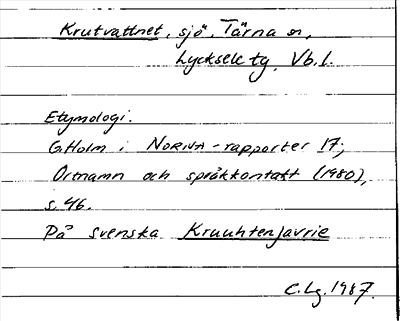 Krutvattnet, sjö, Tärna sn,
Lycksele tg, Vb.l.
Etymologi.
G.Holm i NORNA-rapporter 17;
Ortnamn och språkkontakt (1980),
s. 46.
På svenska Kruuhtenjavrie
C.Lg. 1987.